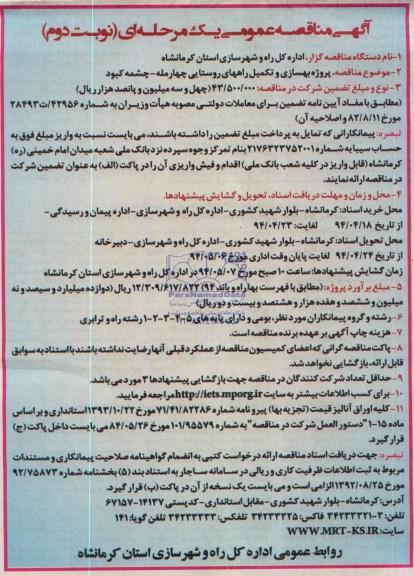 آگهی مناقصه عمومی یک مرحله‌ای (نوبت دوم)
۱-نام دستگاه مناقصه گزار: اداره کل راه و شهرسازی استان کرمانشاه
۲-موضوع مناقصه: پروژه بهسازی و تکمیل راههای روستایی چهارمله-چشمه کبود
۳- نوع و مبلغ تضمین شرکت در مناقصه: ۴۳/۵۰۰/۰۰۰ (چهل و سه میلیون و پانصد هزار ریال)
(مطابق با مفاد آیین نامه تضمین برای معاملات دولتی مصوبه هیأت وزیران به شماره ۴۲۹۵۶/ت۲۸۴۹۳ه
مورخ ۸۲/۸/۱۱ و اصلاحیه آن)
تبصره: پیمانکارانی که تمایل به پرداخت مبلغ تضمین را داشته باشند، می بایست نسبت به واریز مبلغ فوق به
حساب سیبا به شماره ۲۱۷۶۴۳۲۷۵۲۰۰۱ بنام تمرکز وجوه سپرده نزد بانک ملی شعبه میدان امام خمینی (ره)
کرمانشاه (قابل واریز در کلیه شعب بانک ملی) اقدام و فیش واریزی آن را در پاکت (الف) به عنوان تضمین شرکت
در مناقصه ارائه نمایند.
۴-محل و زمان و مهلت دریافت اسناد، تحویل و گشایش پیشنهادها:
محل خرید اسناد: کرمانشاه-بلوار شهید کشوری-اداره کل راه و شهرسازی-اداره پیمان و رسیدگی-
از تاریخ ۹۴/۰۴/۱۸ لغایت: ۹۴/۰۴/۲۳
محل تحویل اسناد: کرمانشاه-بلوار شهید کشوری-اداره کل راه و شهرسازی-دبیرخانه
از تاریخ ۹۴/۰۴/۲۴ لغایت پایان وقت اداری مورخ ۹۴/۰۵/۰۶
زمان گشایش پیشنهادها: ساعت ۱۰ صبح مورخ ۹۴/۰۵/۰۷ در اداره کل راه و شهرسازی استان کرمانشاه
۵-مبلغ برآورد پروژه: (مطابق با فهرست بهاء راه و باند ۹۴) ۱۲/۳۰۹/۶۱۷/۸۲۲ ریال (دوازده میلیارد و سیصد و نه
میلیون و ششصد و هفده هزار و هشتصد و بیست و دو ریال)
۶-رشته و گروه پیمانکاران مورد نظر: بومی و دارای پایه های ۵-۴-۳-۲-۱ رشته راه و ترابری
۷-هزینه چاپ آگهی بر عهده برنده مناقصه است.
۸-پاکت مناقصه گرانی که اعضای کمیسیون مناقصه از عملکرد قبلی آنها رضایت نداشته باشند با استناد به سوابق
قابل ارائه، بازگشایی نخواهد شد.
۹-حداقل تعداد شرکت کنندگان در مناقصه جهت بازگشایی پیشنهادها ۳ مورد می باشد.
۱۰-برای کسب اطلاعات بیشتر به سایت http://iets.mporg.ir مراجعه فرمایید.
۱۱-کلیه اوراق آنالیز قیمت (تجزیه بها) پیرو نامه شماره ۷۱/۴۱/۸۲۳۸۶ مورخ ۱۳۹۳/۱۰/۲۲ استانداری و بر اساس
ماده ۱۵-۱ "دستور العمل شرکت در مناقصه" به شماره ۱۰۱/۹۵۵۷۹ مورخ ۸۴/۰۵/۲۶ می بایست داخل پاکت (ج)
قرار گیرد.
تبصره: جهت دریافت اسناد مناقصه ارائه درخواست کتبی به انضمام گواهینامه صلاحیت پیمانکاری و مستندات
مربوط به ثبت اطلاعات ظرفیت کاری و ریالی در سامانه ساجار به استناد بند (۵) بخشنامه شماره ۹۲/۷۵۸۷۳
مورخ ۱۳۹۲/۰۸/۲۵ الزامی است و می بایست یک نسخه از آن در پاکت (ب) قرار گیرد.
آدرس: کرمانشاه-بلوار شهید کشوری-مقابل استانداری-کدپستی ۱۴۱۳۷-۶۷۱۵۷
تلفن: ۳-۳۴۲۳۳۳۲۱ فاکس: ۳۴۲۳۳۳۲۵ تلفکس: ۳۴۲۳۳۳۳۳ تلفن گویا: ۱۴۱
سایت: WWW.MRT-KS.IR
روابط عمومی اداره کل راه و شهرسازی استان کرمانشاه